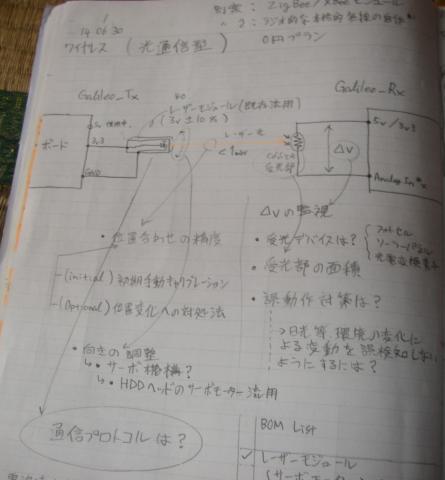 別案: ZigBee/XBeeモジュール
'14 06 30
ワイヤレス (光通信型)
0円プラン
Galileo_Tx
Galileo_Rx
レーザーモジュール(既存流用)
(3v±10%)
ボード
3v3
GND
レーザー光
受光部
ΔV
5v/3v3
Analog In *x
ΔVの監視
・位置合わせの精度
・受光デバイスは?
フォトセル
ソーラーパネル
光電変換素子
・受光部の面積
-(initial) 初期手動キャリブレーション
-(Optional) 位置変化への対処法
・誤動作対策は?
→日光等、環境の変化に
よる変動を誤検知しない
ようにするには?
・向きの調整
・サーボ機構?
・HDDヘッドのサーボモーター流用
通信プロトコルは?
BOM List
✓レーザーモジュール